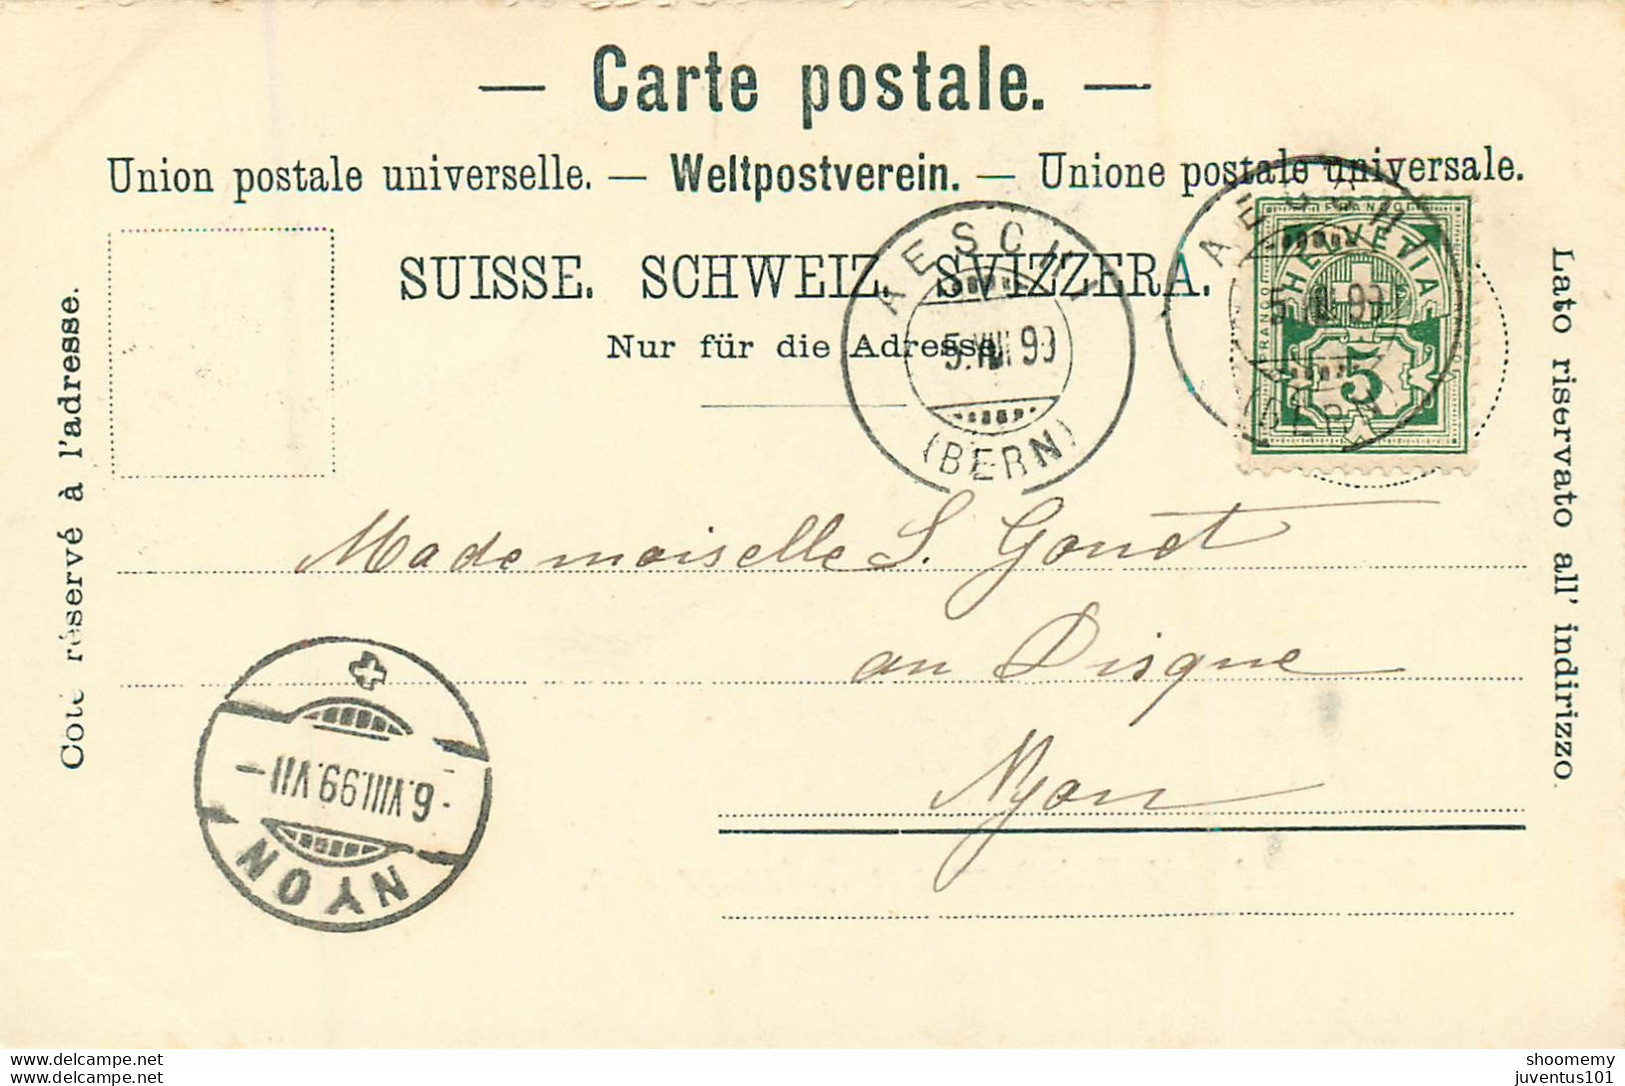 — Carte postale. —
Union postale universelle. — Weltpostverein. — Unione postale universale.
SUISSE. SCHWEIZ. SVIZZERA.
Nur für die Adresse.
Coté réservé à l'adresse.
Lato riservato all' indirizzo.
AESCHI
5.VIII 99
(BERN)
AESCHI
5.VIII 99
(BERN)
FRANCO
HELVETIA
FRANCO
5
Mademoiselle S. Gonet
au Disque
Nyon
-6.VIII.99.VII-
NYON
www.delcampe.net
www.delcampe.net
shoomemy
juventus101